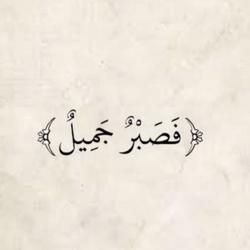 ﴿فَصَبْرٌ جَمِيلٌ﴾